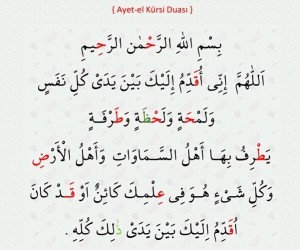 { Ayet-el Kürsi Duası }
بِسْمِ اللهِ الرَّحْمٰنِ الرَّحِيمِ
اَللّٰهُمَّ اِنِّى أُقَدِّمُ اِلَيْكَ بَيْنَ يَدَىْ كُلِّ نَفَسٍ
وَلَمْحَةٍ وَلَحْظَةٍ وَطَرْفَةٍ
يَطْرِفُ بِهَا أَهْلُ السَّمَاوَاتِ وَأَهْلُ الْأَرْضِ
وَكُلِّ شَىْءٍ هُوَ فِى عِلْمِكَ كَائِنٌ اَوْ قَدْ كَانَ
اُقَدِّمُ اِلَيْكَ بَيْنَ يَدَىْ ذٰلِكَ كُلِّهِ .